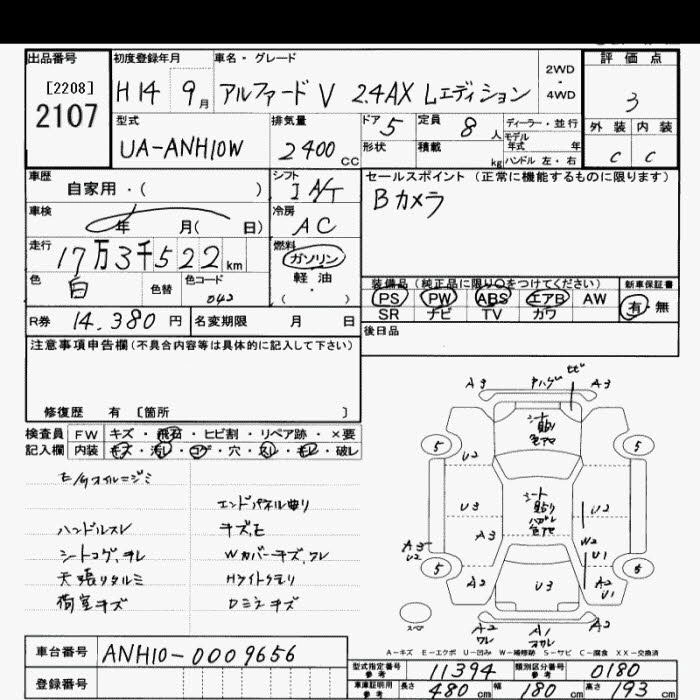 出品番号
[2208]
2107
初度登録年月
H14 9月
車名・グレード
アルファードV 2.4AX Lエディション
2WD
・
4WD
評価点
3
外装 内装
C C
型式
UA-ANH10W
排気量
2400 CC
ドア 5
形状
定員 8 人
積載 kg
ディーラー・並行
モデル年式 年
ハンドル 左・右
車歴
自家用・( )
シフト
I A/T
車検
年 月( 日)
冷房
AC
走行
17万3千522 km
燃料
ガソリン
軽油
・( )
色
白
色替
色コード
042
セールスポイント (正常に機能するものに限ります)
Bカメラ
装備品 (純正品に限り○をつけてください)
PS PW ABS エアB AW
SR ナビ TV カワ
新車保証書
有・無
R券 14,380 円
名変期限 月 日
後日品
注意事項申告欄(不具合内容等は具体的に記入して下さい)
修復歴 有 [箇所 ]
検査員 FW キズ・飛石・ヒビ割・リペア跡・×要
記入欄 内装 キズ・汚レ・コゲ・穴・スレ・キレ・破レ
E/Gオイルニジミ
エンドパネル曲り
ハンドルスレ
キズ,モ
シートコゲ,チレ
Wカバーキズ,ワレ
天張リタルミ
Hライトクモリ
荷室キズ
Dミラーキズ
A3
ヒビ
A3
シート
貼り
色アセ
5
5
U2
U3
シート
貼り
ハガレ
色アセ
U2
A3
W2
A3
U2
U1
5
5
A2
U3
A2
U1
スペア
A2
ワレ
A1
A2
A-キズ E-エクボ U-凹み W-補修跡 S-サビ C-腐食 XX-交換済
車台番号 ANH10-0009656
型式指定番号 参考 11394
類別区分番号 参考 0180
登録番号
車庫証明用 参考 長さ 480 cm 幅 180 cm 高さ 193 cm